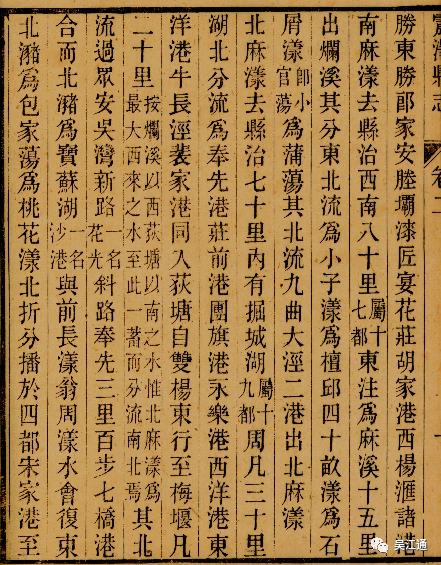 勝東勝郎家安塍壩漆匠宴花莊胡家港西楊滙諸港
南麻漾去縣治西南八十里屬十七都東注爲麻溪十五里
出爛溪其分東北流爲小子漾爲檀邱四十畝漾爲石
屑漾卽小官蕩爲蒲蕩其北流九曲大涇二港出北麻漾
北麻漾去縣治七十里內有掘城湖屬十九都周凡三十里
湖北分流爲奉先港莊前港團旗港永樂港西洋港東
洋港牛長涇裴家港同入荻塘自雙楊東行至梅堰凡
二十里按爛溪以西荻塘以南之水惟北麻漾爲最大西來之水至此一蓄而分流南北焉其北
流過眾安吳灣新路一名花光斜路奉先三里百步七橋港
合而北瀦爲寶蘇湖一名沙港與前長漾翁周漾水會復東
北瀦爲包家蕩爲桃花漾北折分播於四都宋家港至
吴江通